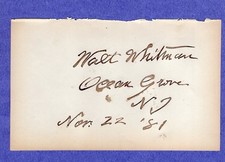 Walt Whitman
Ocean Grove
N J
Nov. 22 '81